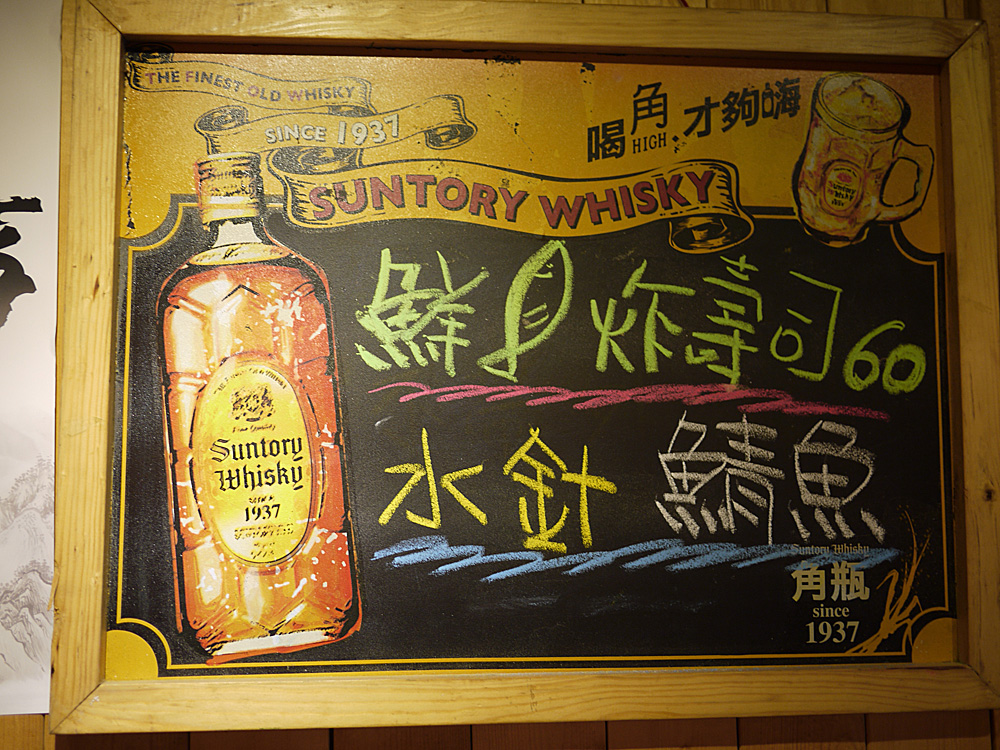 THE FINEST OLD WHISKY
SINCE 1937
喝角才夠嗨
HIGH
SUNTORY WHISKY
鮮貝炸壽司60
水針 鯖魚
Suntory
Whisky
SINCE
1937
Suntory Whisky
角瓶
since
1937